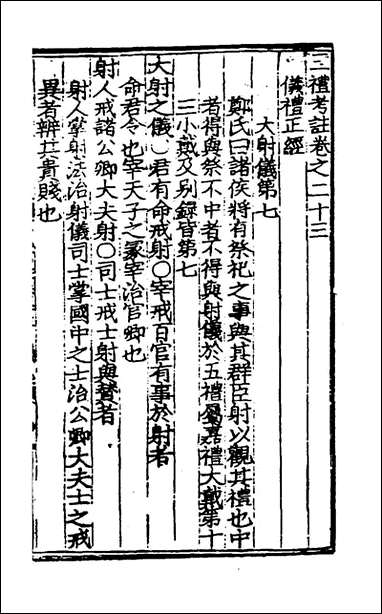 三禮考註卷之二十三
儀禮正經
大射儀第七
鄭氏曰諸侯將有祭祀之事與其群臣射以觀其禮也中
者得與祭不中者不得與射儀於五禮屬嘉禮大戴第十
三小戴及別録皆第七
大射之儀○君有命戒射○宰戒百官有事於射者
命君令也宰天子之冢宰治官卿也
射人戒諸公卿大夫射○司士戒士射與贊者
射人掌射法治射儀司士掌國中之士治公卿大夫士之戒
異者辨其貴賤也